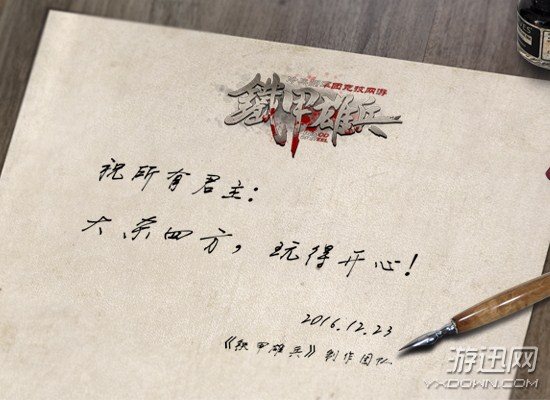 铁甲雄兵
祝所有君主:
大杀四方,玩得开心!
2016.12.23
《铁甲雄兵》制作团队
游迅网
YXDOWN.COM